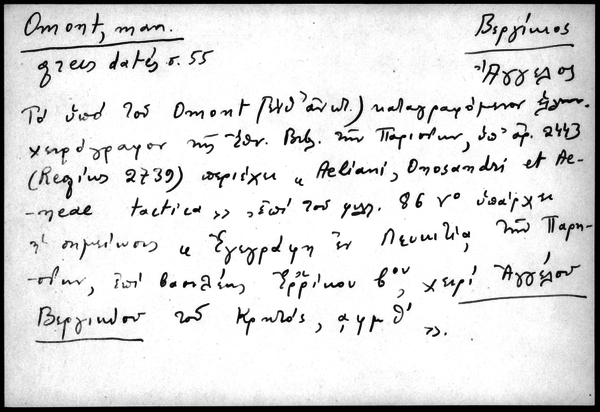 Omont, man. Βεργίκιος
grecs datés σ. 55 Ἄγγελος
Τὸ ὑπὸ τοῦ Omont (ἔνθ' ἀνωτ.) καταγραφόμενον
χειρόγραφον τῆς Ἐθν. Βιβ. τῶν Παρισίων, ὑπ' ἀρ. 2443
(Regius 2739) περιέχει « Aeliani, Onosandri et Ae-
-neae tactica », ἐπὶ τοῦ φυλ. 86 vº ὑπάρχει
ἡ σημείωσις « Ἐγεγράφη ἐν Λευκετίᾳ, τῶν Παρη-
-σίων, ἐπὶ βασιλέως Ἐῤῥίκου βου, χειρὶ Ἀγγέλου
Βεργικίου τοῦ Κρητός, ͵αφμθʹ ».